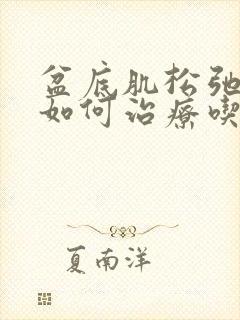 盆底肌松弛
如何治疗喫
夏南洋